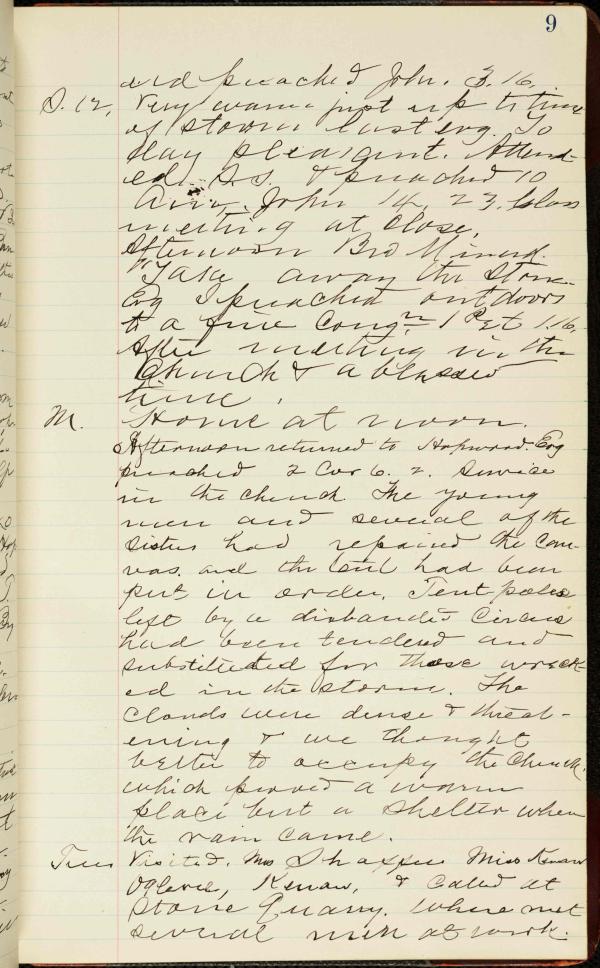 9
and preached John. 3.16.
S. 12, Very warm just up to time
of storm last evg. To
day pleasant. Attend-
ed S.S. & preached 10
Am. John 14. 23. Class
meeting at close.
Afternoon Bro
"Take away the Stone
Evg I preached outdoors
to a fine Congn 1 Pet 1.16.
After meeting in the
Church & a blessed
time.
M. Home at noon.
Afternoon returned to Hopwood. Evg
preached 2 Cor 6. 2. Service
in the Church The young
men and several of the
Sisters had repaired the can-
vas. and the tent had been
put in order. Tent poles
left by a disbanded Circus
had been tendered and
substituted for those wreck-
ed in the storm. The
clouds were dense & threat-
ening & we thought
better to occupy the Church.
which proved a warm
place but a shelter when
the rain came.
Tues Visited. Mrs Miss
& Called at
Stone Quarry. Where met
several men at work.